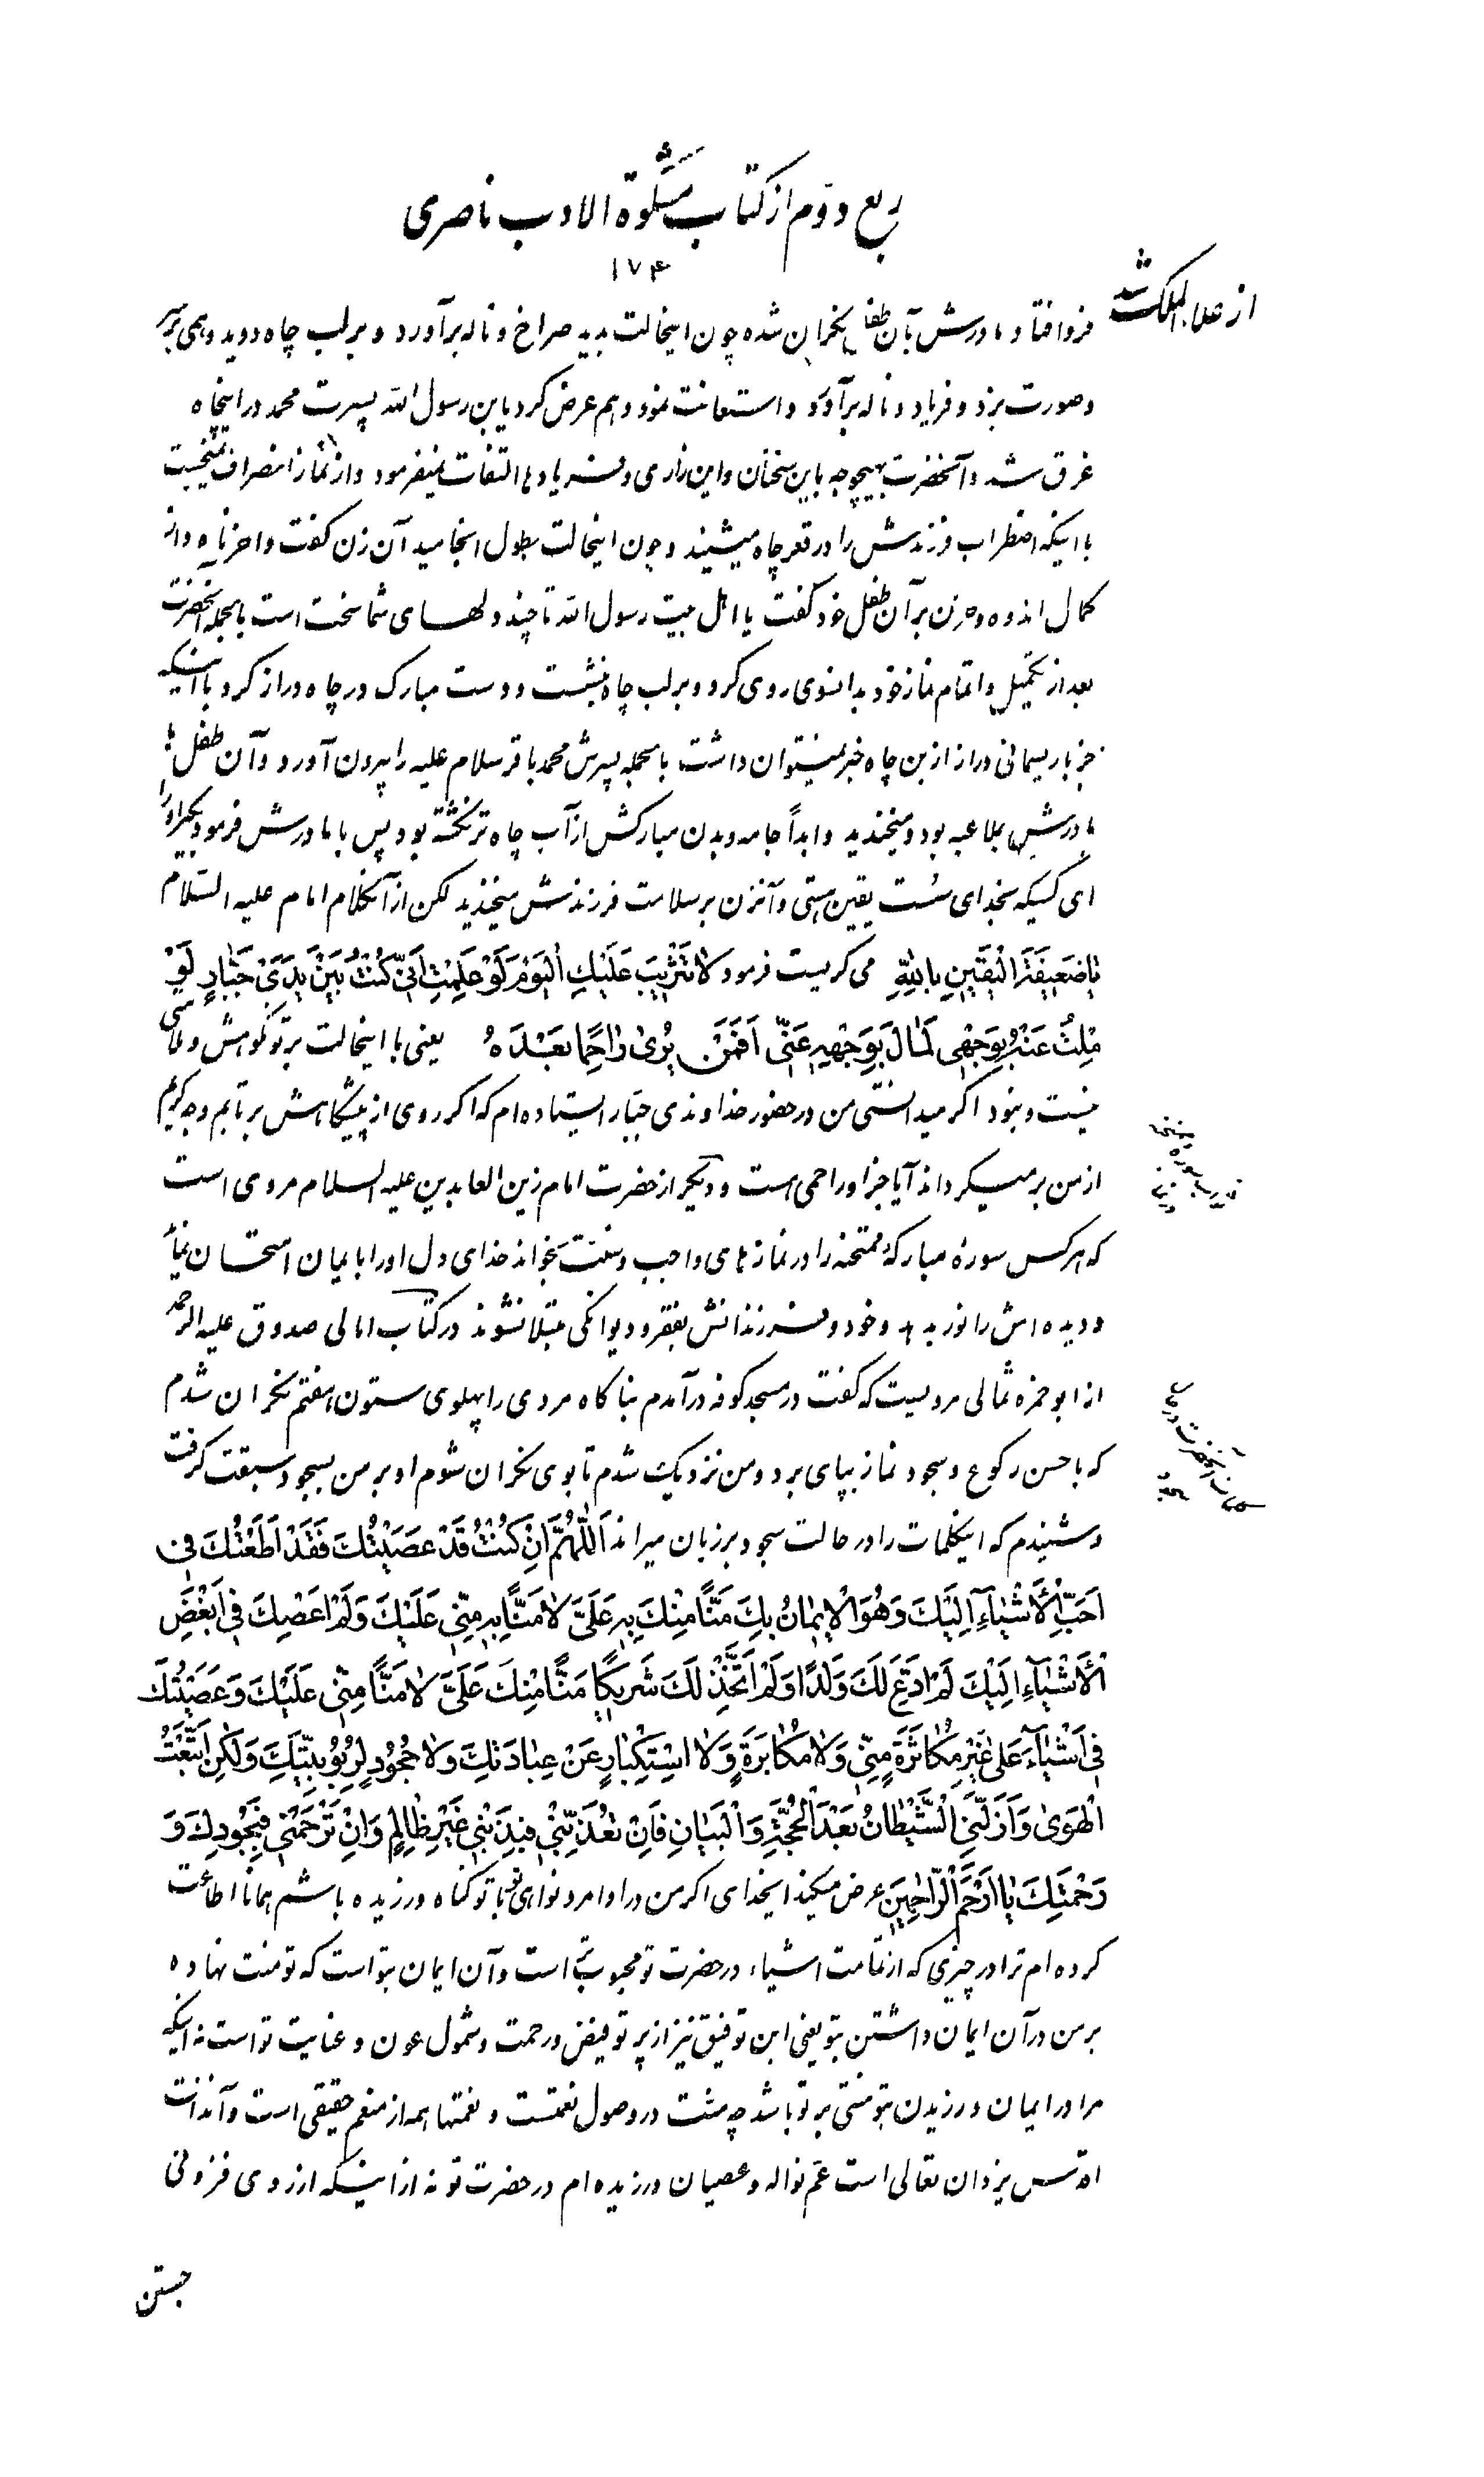 ربع دوّم از کتاب مشکوة الادب ناصری
۱۷۴
فرو افتاد مادرش بآن طفل نگران شده چون اینحالت بدید صراخ و ناله برآورد و بر لب چاه دوید و همی بر سر
و صورت بزد و فریاد و ناله برآورد و استعانت نمود و هم عرض کرد یابن رسول الله پسرت محمد در اینچاه
غرق شد و آنحضرت بهیچوجه باین سخنان و این زاری و فریادها التفات نمیفرمود و از نماز انصراف نمیجست
با اینکه اضطراب فرزندش را در قعر چاه میشنید و چون اینحالت بطول انجامید آن زن گفت و احزناه و از
کمال اندوه و حزن بر آن طفل خود گفت یا اهل بیت رسول الله تا چند دلهای شما سخت است بالجمله آنحضرت
بعد از تکمیل و اتمام نماز خود بدانسوی روی کرد و بر لب چاه بنشست و دست مبارک در چاه دراز کرد با اینکه
جز با ریسمانی دراز از بن چاه خبر نمیتوان داشت بالجمله پسرش محمد باقر سلام علیه را بیرون آورد و آن طفل با
مادرش بملاعبه بود و میخندید و ابداً جامه و بدن مبارکش از آب چاه تر نگشته بود پس با مادرش فرمود بگیر او را
ای کسیکه بخدای سست یقین هستی و آنزن بر سلامت فرزندش میخندید لکن از آنکلام امام علیه السّلام
یٰاضَعیفَةَ الْیَقینِ بِاللهِ می گریست فرمود لٰا تَثْریبَ عَلَیْكِ الْیَوْمَ لَوْ عَلِمْتِ اَنّی کُنْتُ بَیْنَ یَدَیْ جَبّٰارٍ لَوْ
مِلْتُ عَنْهُ بِوَجْهی لَمٰالَ بِوَجْهِهِ عَنّی اَفَمَنْ یُریٰ رٰاحِمًا بَعْدَهُ یعنی با اینحالت بر تو نکوهش و ملامتی
نیست و نبود اگر میدانستی من در حضور خداوندی جبّار ایستاده‌ام که اگر روی از پیشگاهش برتابم وجه کریم
از من بر میگرداند آیا جز او راحمی هست و دیگر از حضرت امام زین العابدین علیه السلام مروی است
که هر کس سورهٔ مبارکهٔ ممتحنه را در نمازهای واجب و سنّت بخواند خدای دل او را با ایمان امتحان نماید
و دیده‌اش را نور بدهد و خود و فرزندانش بفقر و دیوانگی مبتلا نشوند در کتاب امالی صدوق علیه الرحمه
از ابوحمزه ثمالی مرویست که گفت در مسجد کوفه در آمدم بناگاه مردی را پهلوی ستون هفتم نگران شدم
که با حسن رکوع و سجود نماز بپای برد و من نزدیک شدم تا بوی نگران شوم او بر من بسجود سبقت گرفت
و شنیدم که اینکلمات را در حالت سجود بر زبان میراند اَللّٰهُمَّ اِنْ کُنْتُ قَدْ عَصَیْتُكَ فَقَدْ اَطَعْتُكَ فی
اَحَبِّ الْاَشْیٰاءِ اِلَیْكَ وَهُوَ الْایمٰانُ بِكَ مَنًّا مِنْكَ بِهِ عَلَیَّ لٰا مَنًّا بِهِ مِنّی عَلَیْكَ وَلَمْ اَعْصِكَ فی اَبْغَضِ
الْاَشْیٰاءِ اِلَیْكَ لَمْ اَدَّعِ لَكَ وَلَدًا وَلَمْ اَتَّخِذْ لَكَ شَریكًا مَنًّا مِنْكَ عَلَیَّ لٰا مَنًّا مِنّی عَلَیْكَ وَعَصَیْتُكَ
فی اَشْیٰاءَ عَلیٰ غَیْرِ مُكٰاثَرَةٍ مِنّی وَلٰا مُكٰابَرَةٍ وَلٰا اسْتِكْبٰارٍ عَنْ عِبٰادَتِكَ وَلٰا جُحُودٍ لِرُبُوبِیَّتِكَ وَلٰكِنِ اتَّبَعْتُ
الْهَویٰ وَاَزَلَّنِی الشَّیْطٰانُ بَعْدَ الْحُجَّةِ وَالْبَیٰانِ فَاِنْ تُعَذِّبْنی فَبِذَنْبی غَیْرَ ظٰالِمٍ وَاِنْ تَرْحَمْنی فَبِجُودِكَ وَ
رَحْمَتِكَ یٰا اَرْحَمَ الرّٰاحِمینَ عرض میکند ایخدای اگر من در اوامر و نواهی تو با تو گناه ورزیده باشم همانا اطاعت
کرده‌ام ترا در چیزی که از تمامت اشیاء در حضرت تو محبوبتر است و آن ایمان بتو است که تو منت نهاده
بر من در آن ایمان داشتن بتو یعنی این توفیق نیز از پرتو فیض و رحمت و شمول عون و عنایت تو است نه اینکه
مرا در ایمان ورزیدن بتو منتی بر تو باشد چه منّت در وصول نعمتست و نعمتها همه از منعم حقیقی است و آنذات
اقدس یزدان تعالی است عمّ نواله و عصیان ورزیده‌ام در حضرت تو نه از اینکه از روی فزونی
جستن